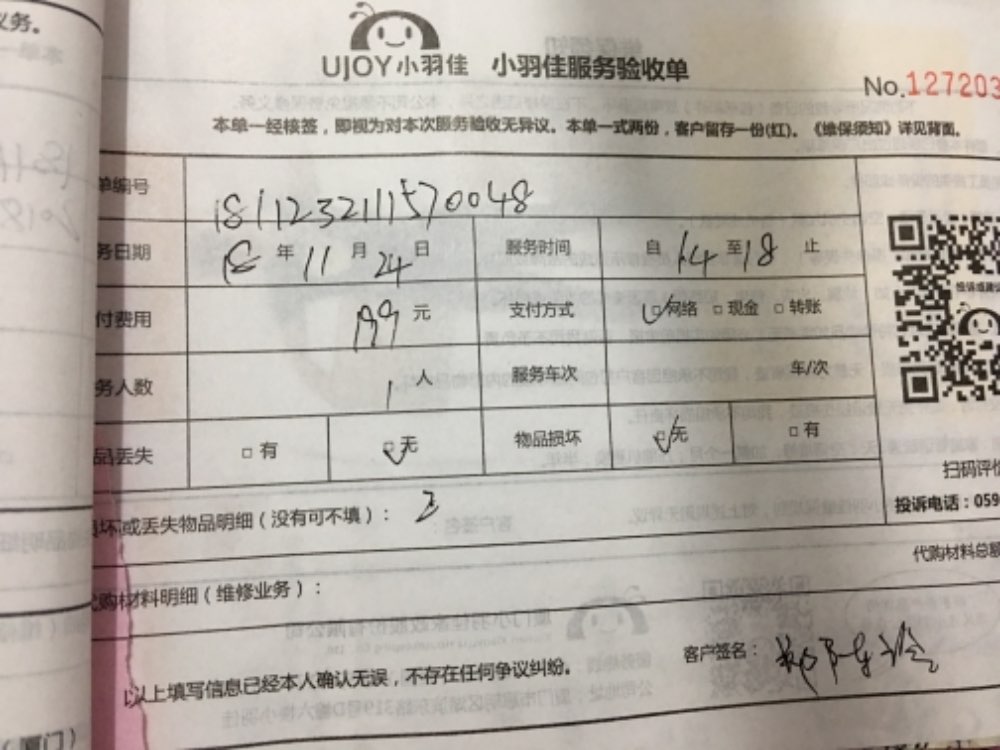 义务。
UJOY小羽佳 小羽佳服务验收单
No.127203
本单一经核签，即视为对本次服务验收无异议。本单一式两份，客户留存一份(红)。《维保须知》详见背面。
单编号 181123211570048
务日期 18年11月24日 服务时间 自14至18止
付费用 199元 支付方式 ☑网络 □现金 □转账
务人数 1人 服务车次 车/次
品丢失 □有 ☑无 物品损坏 ☑无 □有
扫码评价
损坏或丢失物品明细（没有可不填）：
投诉电话：059
代购材料总额
代购材料明细（维修业务）：
以上填写信息已经本人确认无误，不存在任何争议纠纷。
客户签名：